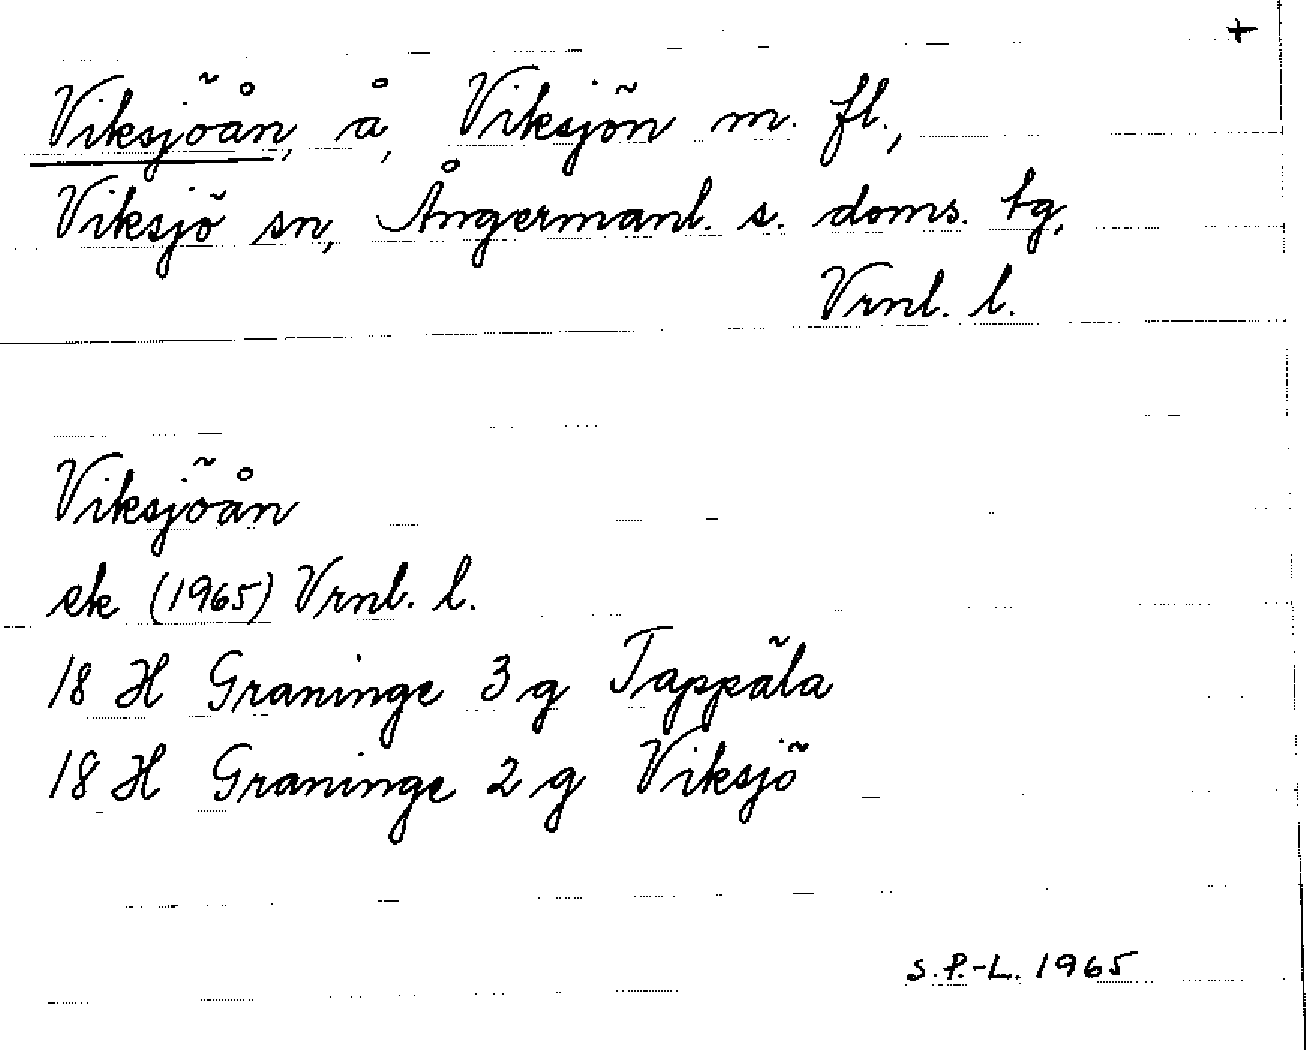 +
Viksjöån, å, Viksjön m. fl.,
Viksjö sn, Ångermanl. s. doms. tg,
Vrnl. l.
Viksjöån
ek (1965) Vrnl. l.
18 H Graninge 3 g Tappäla
18 H Graninge 2 g Viksjö
S.P.-L. 1965